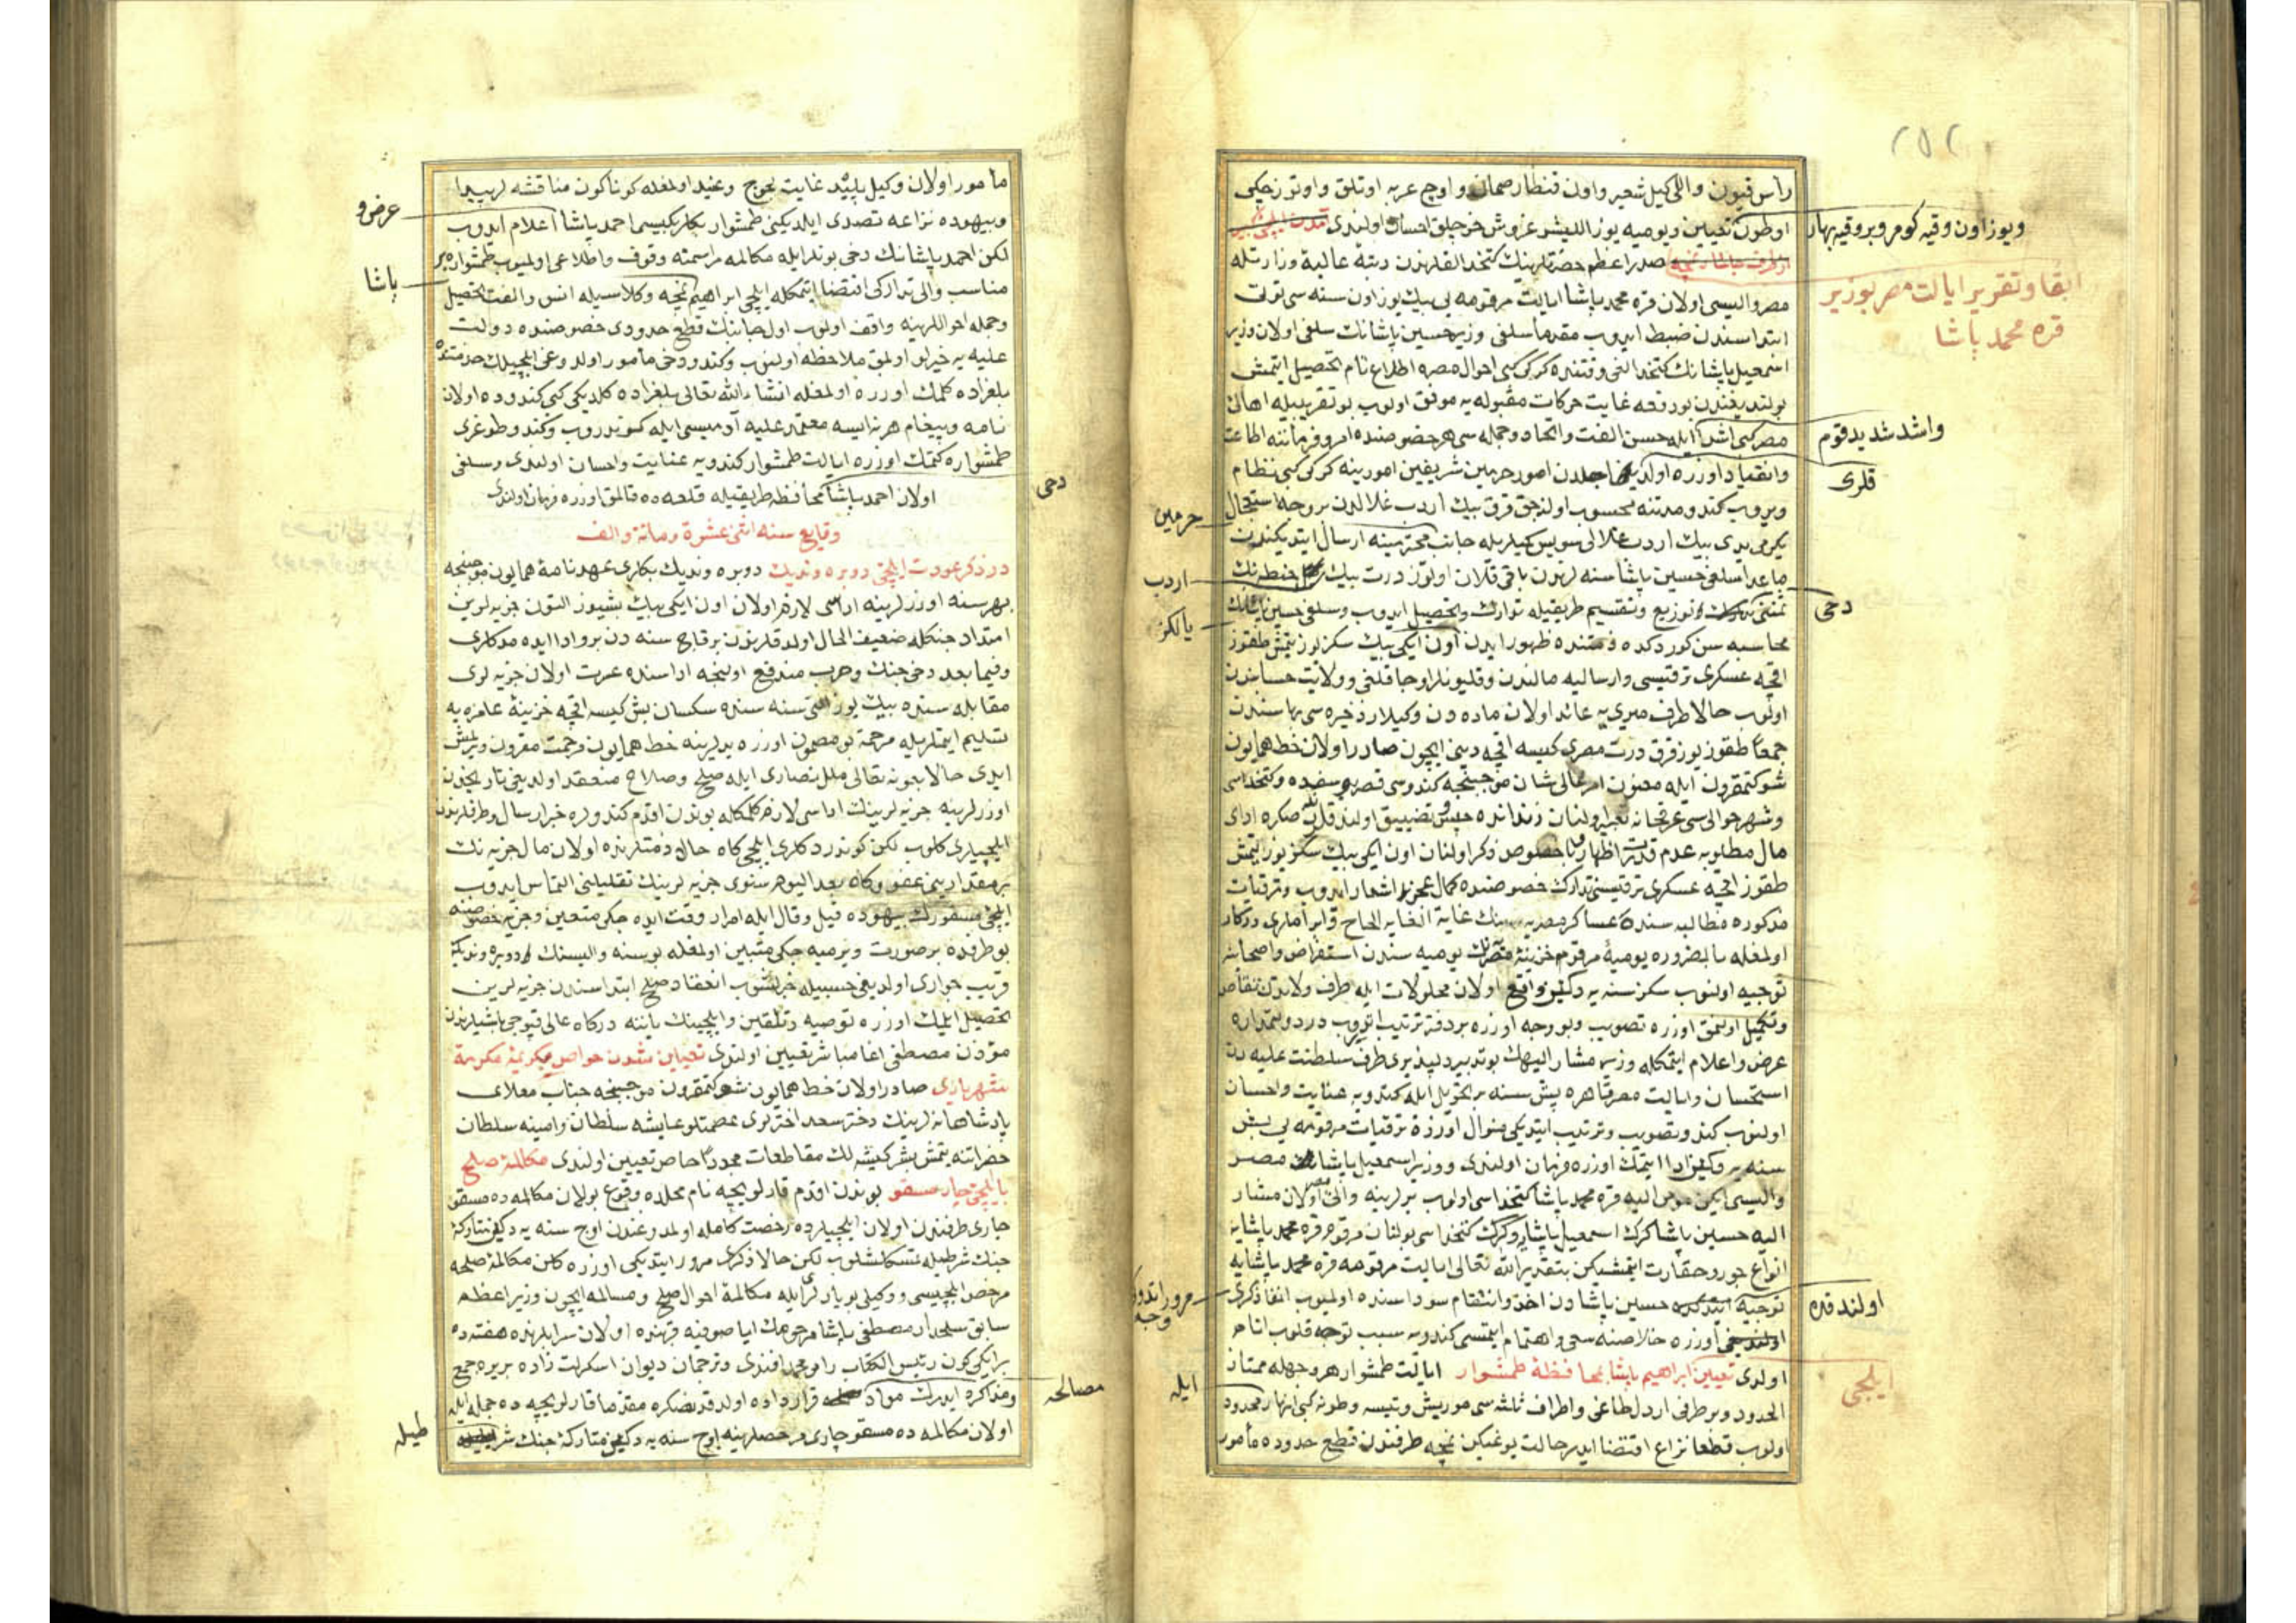 ٢٥٢
رأس قیون واللی کیل شعیر واون قنطار صمان و اوچ عربه اوتلق واوتوز چکی
اوطون تعیین ویومیه یوز اللیشر غروش خرجلق احسان اولندی
ویوز اون وقیه کومر وبر وقیه بهار
صدر اعظم حضرتلرینك کتخدالقلرندن رتبۀ عالیۀ وزارتله
ابقا وتقریر ایالت مصر بوزیر
قره محمد پاشا
مصر والیسی اولان قره محمد پاشا ایالت مرقومه یی بیك یوز اون سنه سی توتی
ابتداسندن ضبط ایدوب مقدما سلفی وزیر حسین پاشانك سلفی اولان وزیر
اسمعیل پاشانك کتخدالغی وقتنده کرکی کبی احوال مصره اطلاع تام تحصیل ایتمش
بولندیغندن بو دفعه غایت حرکات مقبوله یه موفق اولوب بو تقریبیله اهالئ
مصر کبی اشدا ایله حسن الفت واتحاد وجمله سی هر خصوصنده امر وفرماننه اطاعت
واشد شدید قوم
وانقیاد اوزره اولدیغی اجلدن امور حرمین شریفین امورینه کرکی کبی نظام
قلری
ویروب کندو مدتنه محسوب اولنجق قرق بیك اردب غلالدن بر وجه استعجال
حرمین
یکرمی یدی بیك اردب غلالی سویس کمیلریله جانب محترمینه ارسال ایتدیکندن
ماعدا سلفی حسین پاشا سنه لرندن باقی قلان اوتوز درت بیك حنطه نك
اردب
ثمننی توزیع وتقسیم طریقیله تدارك وتحصیل ایدوب وسلفی حسین پاشانك
دخی
یالکز
محاسبه سن کوردکده ذمتنده ظهور ایدن اون ایکی بیك سکز یوز یتمش طقوز
اقچه عسکری ترقیسی وارسالیه مالندن وقلیونلر اوجاقلغی وولایت حسابندن
اولوب حالا طرف میری یه عائد اولان ماده دن وکیلار ذخیره سی بهاسندن
جمعا طقوز یوز قرق درت مصری کیسه اقچه دینی ایچون صادر اولان خط همایون
شوکتمقرون ایله معنون امر عالی شان موجبنجه کندوسی قصر یوسفده وکتخداسی
وشهر حوالی سی عرقخانه تعبیر اولنان زندانده حبس وتضییق اولندقلرندن صکره ادای
مال مطلوبه عدم قدرت اظهار وخصوص ذکر اولنان اون ایکی بیك سکز یوز یتمش
طقوز اقچه عسکری ترقیسنی تدارك خصوصنده کمال عجزن اشعار ایدوب وترقیات
مذکوره مطالبه سنده عساکر مصریه نك غایة الغایه الحاح وابراملری درکار
اولمغله بالضروره یومیۀ مرقوم خزینۀ مصرنك یومیه سندن استقراض واصحابنه
توجیه اولنوب سکز سنه یه دکین واقع اولان محلولات ایله طرف ولاتدن تقاص
وتکمیل اولنمق اوزره تصویب وبو وجه اوزره بر دفتر ترتیب ایدوب در دولتمداره
عرض واعلام ایتمکله وزیر مشار الیهك بو تدبیر دلپذیری طرف سلطنت علیه دن
استحسان وایالت مصر قاهره بش سنه بر تحویل ایله کندویه عنایت واحسان
اولنوب کندو تصویب وترتیب ایتدیکی منوال اوزره ترقیات مرقومه یی بش
سنه یه دکین ادا ایتمك اوزره فرمان اولندی ووزیر اسمعیل پاشا مصر
والیسی ایکن مومی الیه قره محمد پاشا کتخداسی اولوب یرلرینه والئ مصر اولان مشار
الیه حسین پاشا کرك اسمعیل پاشایه وکرك کتخداسی بولنان مرقوم قره محمد پاشایه
انواع جور وحقارت ایتمشیکن بتقدیر الله تعالی ایالت مرقومه قره محمد پاشایه
توجیه حسین پاشادن اخذ وانتقام سوداسنده اولمیوب انفا ذکری
اولندقده
مرور ایتدوکی
وجه
اوزره خلاصنه سعی واهتمام ایتمسی کندویه سبب توجه قلوب انام
اولدی تعیین ابراهیم پاشا بمحافظۀ طمشوار ایالت طمشوار هر وجهله ممتاز
ایلچی
ایله
الحدود وبر طرفی اردل طاغی واطراف ثلثه سی موریش وتیسه وطونه کبی انهار محدود
اولوب قطعا نزاع اقتضا ایدر حالت یوغیکن نمچه طرفندن قطع حدوده مأمور
مأمور اولان وکیل پلید غایت لجوج وعنید اولمغله کوناکون مناقشه لر پیدا
وبیهوده نزاعه تصدی ایلدیکنی طمشوار بکلربکیسی احمد پاشا اعلام ایدوب
عرض و
لکن احمد پاشانك دخی بونلر ایله مکالمه مراسمنه وقوف واطلاعی اولمیوب طمشواره بر
مناسب والی تدارکی اقتضا ایتمکله ایلچی ابراهیم نمچه وکلاسیله انس والفت تحصیل
پاشا
وجمله احواللرینه واقف اولوب اول جانبك قطع حدودی خصوصنده دولت
علیه یه خیرلو اولمق ملاحظه اولنوب وکندو دخی مأمور اولدوغی ایلچیلك خدمتنده
بلغراده کلمك اوزره اولمغله انشاء الله تعالی بلغراده کلدیکی کبی کندوده اولان
نامه وپیغام هر نه ایسه معتمد علیه آدمیسی ایله کوندروب وکندو طوغری
طمشواره کتمك اوزره ایالت طمشوار کندویه عنایت واحسان اولندی وسلفی
اولان احمد پاشا محافظه طریقیله قلعه ده قالمق اوزره فرمان اولندی
دخی
وقایع سنه اثنی عشرة ومائة والف
در ذکر عودت ایلچئ دوبره وندیك دوبره وندیك بکلری عهدنامۀ همایون موجبنجه
بهر سنه اوزرلرینه اداسی لازم اولان اون ایکی بیك بشیوز التون جزیه لرین
امتداد جنکله ضعیف الحال اولدقلرندن بر قاچ سنه دن برو ادا ایده مدکلری
وفیما بعد دخی جنك وحرب مندفع اولنجه اداسنده عسرت اولان جزیه لری
مقابله سنده بیك یوز التی سنه سنده سکسان بش کیسه اقچه خزینۀ عامره یه
تسلیم ایتملریله مرحمة بو مضمون اوزره یدلرینه خط همایون مرحمت مقرون ویرلمش
ایدی حالا بعونه تعالی ملل نصاری ایله صلح وصلاح منعقد اولدیغی تاریخدن
اوزرلرینه جزیه لرینك اداسی لازم کلمکله بوندن اقدم کندولره خبر ارسال وطرفلرندن
ایلچیلری کلوب لکن کوندردکلری ایلچی کاه حالا ذمتلرنده اولان مال جزیه نك
بر مقدارینی عفو وکاه بعد الیوم سنوی جزیه لرینك تقلیلنی التماس ایدوب
ایلچئ مسفورك بیهوده قیل وقال ایله امرار وقت ایده جکی متعین وجزیه خصوصنه
بو طرفده بر صورت ویرمیه جکی متبین اولمغله بوسنه والیسنك دوبره وندیکه
قریب جواری اولدیغی حسبیله خبرلشوب انعقاد صلح ابتداسندن جزیه لرین
تحصیل ایلمك اوزره توصیه وتلقین وایلچینك یاننه درکاه عالی قپوجی باشیلرندن
مؤذن مصطفی اغا مباشر تعیین اولندی تعیین شدن خواص بکریمۀ مکرمۀ
شهریاری صادر اولان خط همایون شوکتمقرون موجبنجه جناب معلای
پادشاهانه لرینك دختر سعد اختر لری عصمتلو عایشه سلطان وامینه سلطان
حضراتنه یتمش بشر کیسه لك مقاطعات مجددا خاص تعیین اولندی مکالمۀ صلح
با ایلچئ چار مسقو بوندن اقدم قارلویچه نام محلده وقوع بولان مکالمه ده مسقو
چاری طرفندن اولان ایلچیلرده رخصت کامله اولمدوغندن اوچ سنه یه دکین متارکۀ
جنك شرطیله تمسکلشلوب لکن حالا ذکری مرور ایتدیکی اوزره کلن مکالمۀ صلحه
مرخص ایلچیسی ووکیلی بویارلری ایله مکالمۀ احوال صلح ومسالمه ایچون وزیر اعظم
سابق سلحدار مصطفی پاشا مرحومك ایا صوفیه قربنده اولان سرایلرنده هفته ده
بر ایکی کون رئیس الکتاب رامی محمد افندی وترجمان دیوان اسکرلت زاده بر یره جمع
ومذاکره ایدرك مواد قرارداده اولدقدنصکره مقدما قارلویچه ده جمله ایله
مصالحه
اولان مکالمه ده مسقو چاری مرخصلرینه اوچ سنه یه دکین متارکۀ جنك شر
طیله